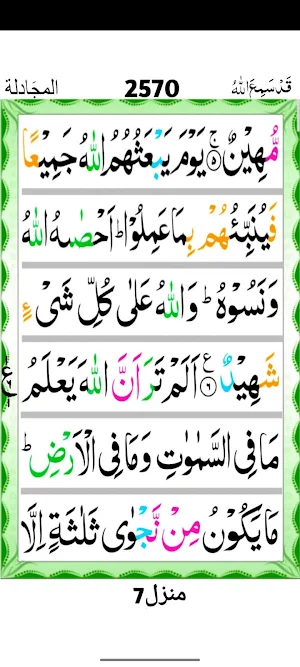 المجَادلة 2570 قَدۡسَمِعَ اللّٰهُ
مُّهِيۡنٌ ۚ‏ ﴿۵﴾ يَوۡمَ يَبۡعَثُهُمُ اللّٰهُ جَمِيۡعًا
فَيُنَبِّئُهُمۡ بِمَا عَمِلُوۡا‌ ؕ اَحۡصٰٮهُ اللّٰهُ
وَنَسُوۡهُ‌ ؕ وَاللّٰهُ عَلٰى كُلِّ شَىۡءٍ
شَهِيۡدٌ ﴿۶﴾ ع اَلَمۡ تَرَ اَنَّ اللّٰهَ يَعۡلَمُ
مَا فِى السَّمٰوٰتِ وَمَا فِى الۡاَرۡضِ‌ؕ
مَا يَكُوۡنُ مِنۡ نَّجۡوٰى ثَلٰثَةٍ اِلَّا
منزل7